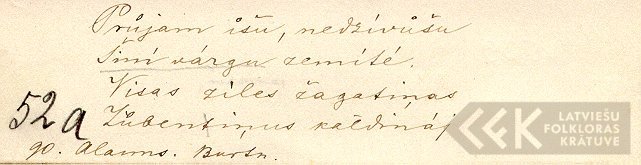 Průjam īšu, nedzívůšu
Šiní várgu zemíté.
Visas ziles žagatiņas
52a Zůbentiņus kaldináj
90. Alauns. Burtn.
LATVIEŠU
FOLKLORAS
KRĀTUVE